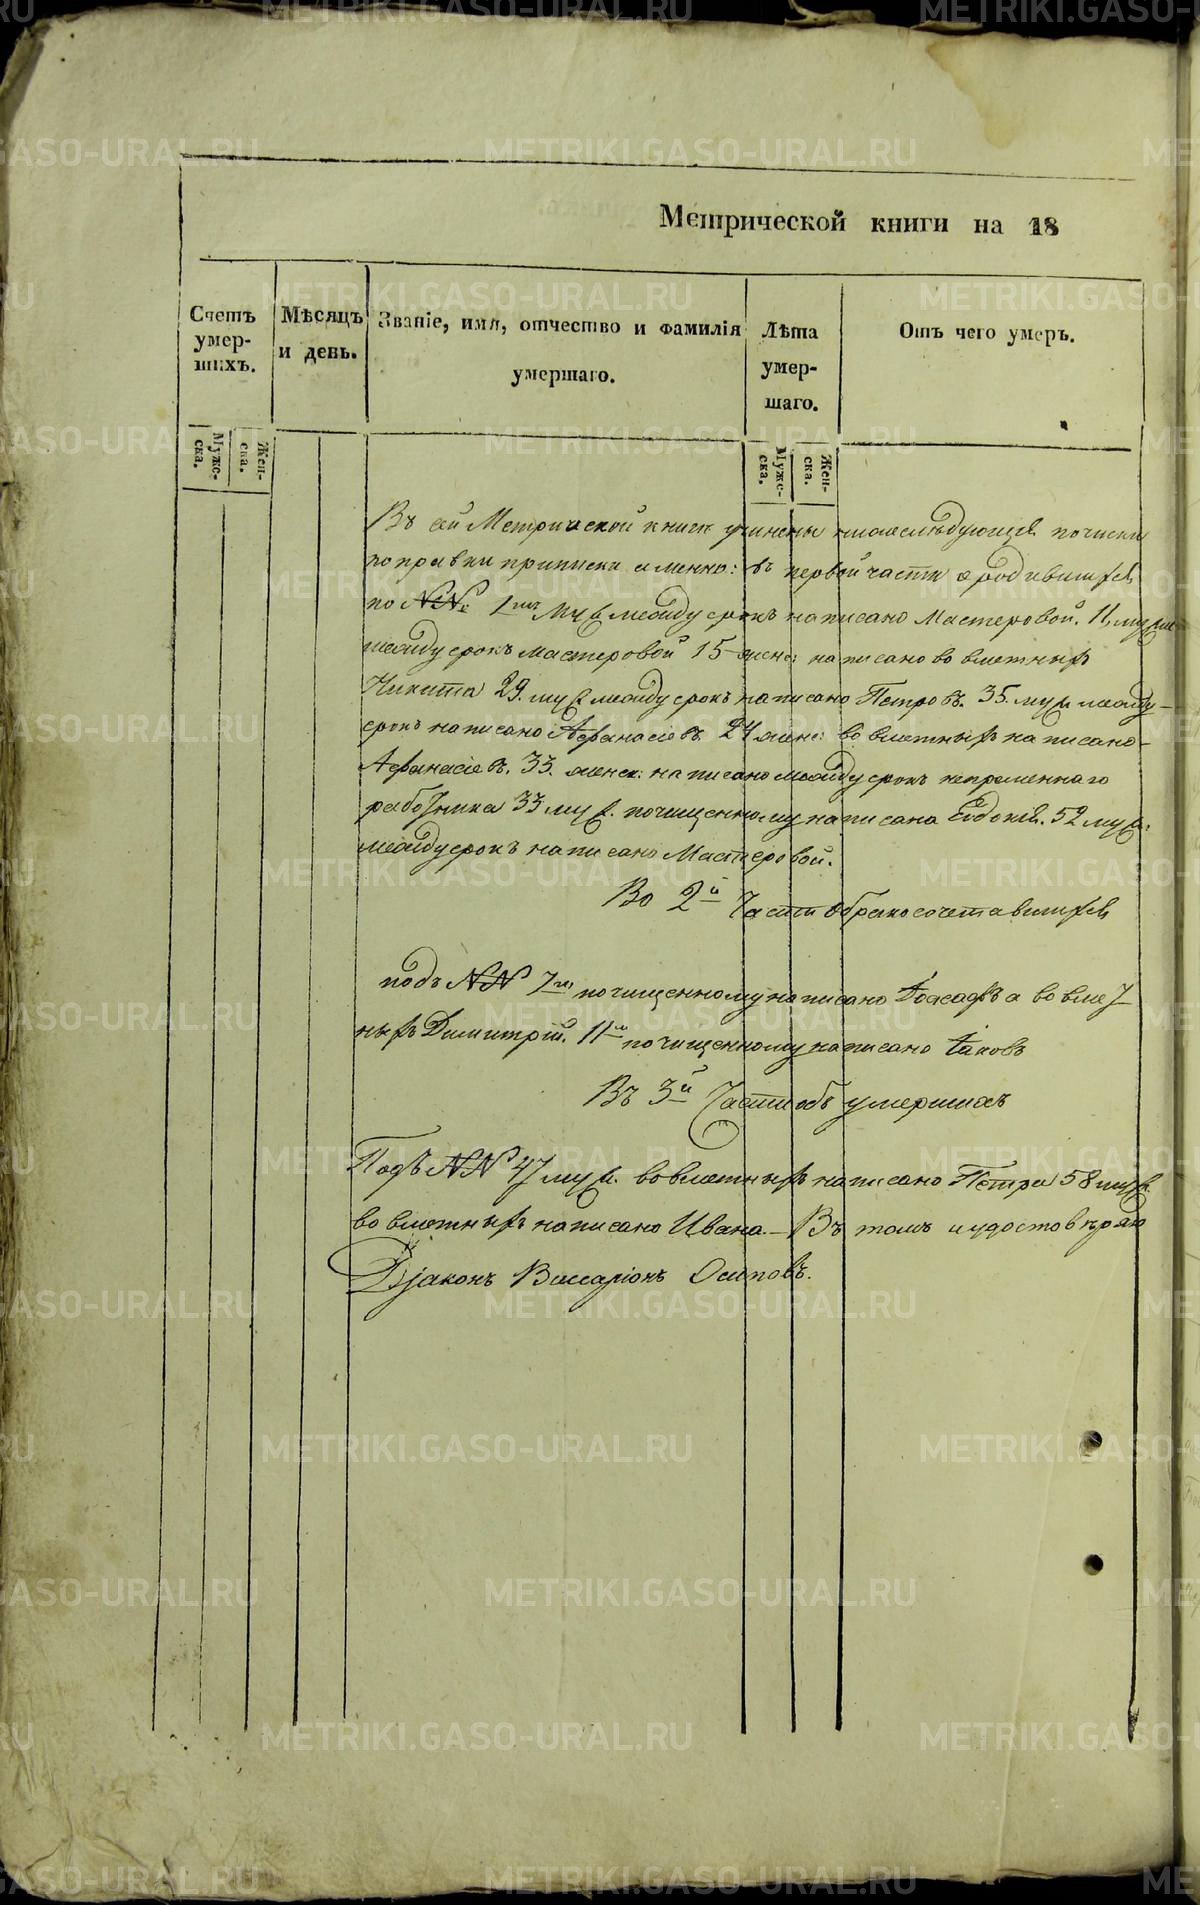 Метрической книги на 18
Счетъ умер- шихъ.
Мѣсяцъ и день.
Званіе, имя, отчество и фамилія умершаго.
Лѣта умер- шаго.
Отъ чего умеръ.
Мужс- ска.
Жен- ска.
Мужс- ска.
Жен- ска.
Въ сей Метрической книге учинены нижеслѣдующія почистки
поправки приписки именно: въ первой части о родившихся
по №№ 1 муж между срокъ написано Мастеровой. 11, муж
между срокъ мастеровой 15 женс: написано во вметныхъ
Никита 29. муж между срокъ написано Петровъ. 35. муж между
срокъ написано Афанасіевъ 24 женс: во вметныхъ написано
Афанасіевъ. 33. женск: написано между срокъ непременнаго
работника 33 муж. почищенному написана Евдокія. 52 муж.
между срокъ написано Мастеровой.
Во 2й Части о бракосочетавшихся
подъ №№ 7 почищенному написано Іоасафъ а во вмет
ныхъ Димитрій. 11 почищенному написано Іаковъ
Въ 3й Части объ умершихъ
Подъ №№ 47 муж. во вметныхъ написано Петра 58 муж.
во вметныхъ написано Ивана. Въ томъ и удостовѣряю
Діаконъ Виссаріонъ Осиповъ.